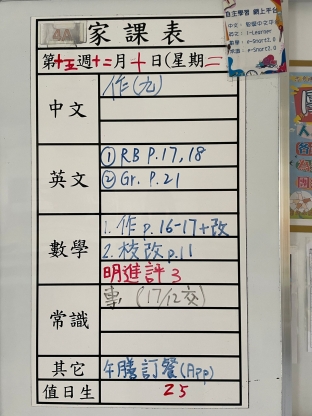 4A
家課表
第十五週十二月十日(星期二)
中文
作(九)
英文
① RB P.17, 18
② Gr. P.21
數學
1. 作 p.16-17+改
2. 校改 p.11
明進評3
常識
專 (17/12交)
其它
午膳訂餐(App)
值日生
25
自主學習 網上平台
i-Learner
e-Smart2.0
e-Smart3.0